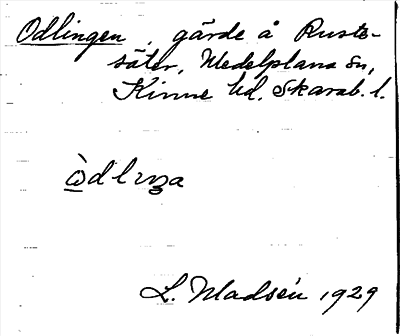 Odlingen, gärde å Ruste-
säter, Medelplana Sn,
Kinne hd. Skarab. l.
L. Madsén 1929